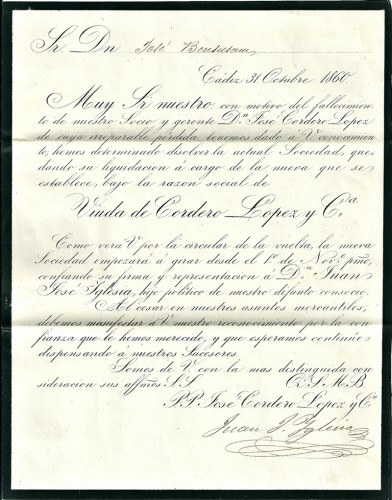 Sr. Dn José Bensusan
Cádiz 31 Octubre 1860
Muy Sr nuestro: con motivo del fallecimien
to de nuestro Socio y gerente Dn. José Cordero Lopez
de cuya irreparable pérdida tenemos dado á V. conocimien
to, hemos determinado disolver la actual Sociedad, que
dando su liquidacion á cargo de la nueva que se
establece, bajo la razon social de
Viuda de Cordero Lopez y Ca.
Como verá V. por la circular de la vuelta, la nueva
Sociedad empezará á girar desde el 1º de Nove. pmo,
confiando su firma y representacion á Dn. Juan
José Iglesia, hijo político de nuestro difunto consocio.
Al cesar en nuestros asuntos mercantiles,
debemos manifestar á V. nuestro reconocimiento por la con
fianza que le hemos merecido, y que esperamos continúe
dispensando á nuestros Sucesores.
Somos de V. con la mas distinguida con
sideracion sus affmos. S. S. Q. S. M. B.
P.P. José Cordero Lopez y Ca
Juan J. Iglesia